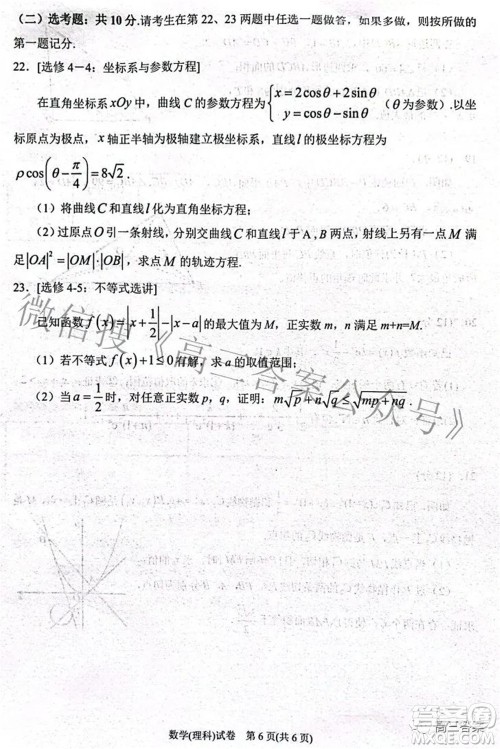 （二）选考题：共 10 分.请考生在第 22、23 两题中任选一题做答，如果多做，则按所做的
第一题记分.
22．[选修 4－4：坐标系与参数方程]
在直角坐标系 xOy 中，曲线 C 的参数方程为{x=2cosθ+2sinθ y=cosθ−sinθ（θ为参数）.以坐
标原点为极点，x 轴正半轴为极轴建立极坐标系，直线 l 的极坐标方程为
ρcos(θ−π/4)=8√2．
（1）将曲线 C 和直线 l 化为直角坐标方程；
（2）过原点 O 引一条射线，分别交曲线 C 和直线 l 于 A，B 两点，射线上另有一点 M 满
足|OA|²=|OM|·|OB|，求点 M 的轨迹方程.
23．[选修 4-5：不等式选讲]
已知函数 f(x)=|x+1/2|−|x−a| 的最大值为 M，正实数 m，n 满足 m+n=M.
（1）若不等式 f(x)+1≤0 有解，求 a 的取值范围；
（2）当 a=1/2 时，对任意正实数 p，q，证明：m√p+n√q≤√(mp+nq)．
微信搜《高三答案公众号》
数学(理科)试卷 第 6 页(共 6 页)
高三答案